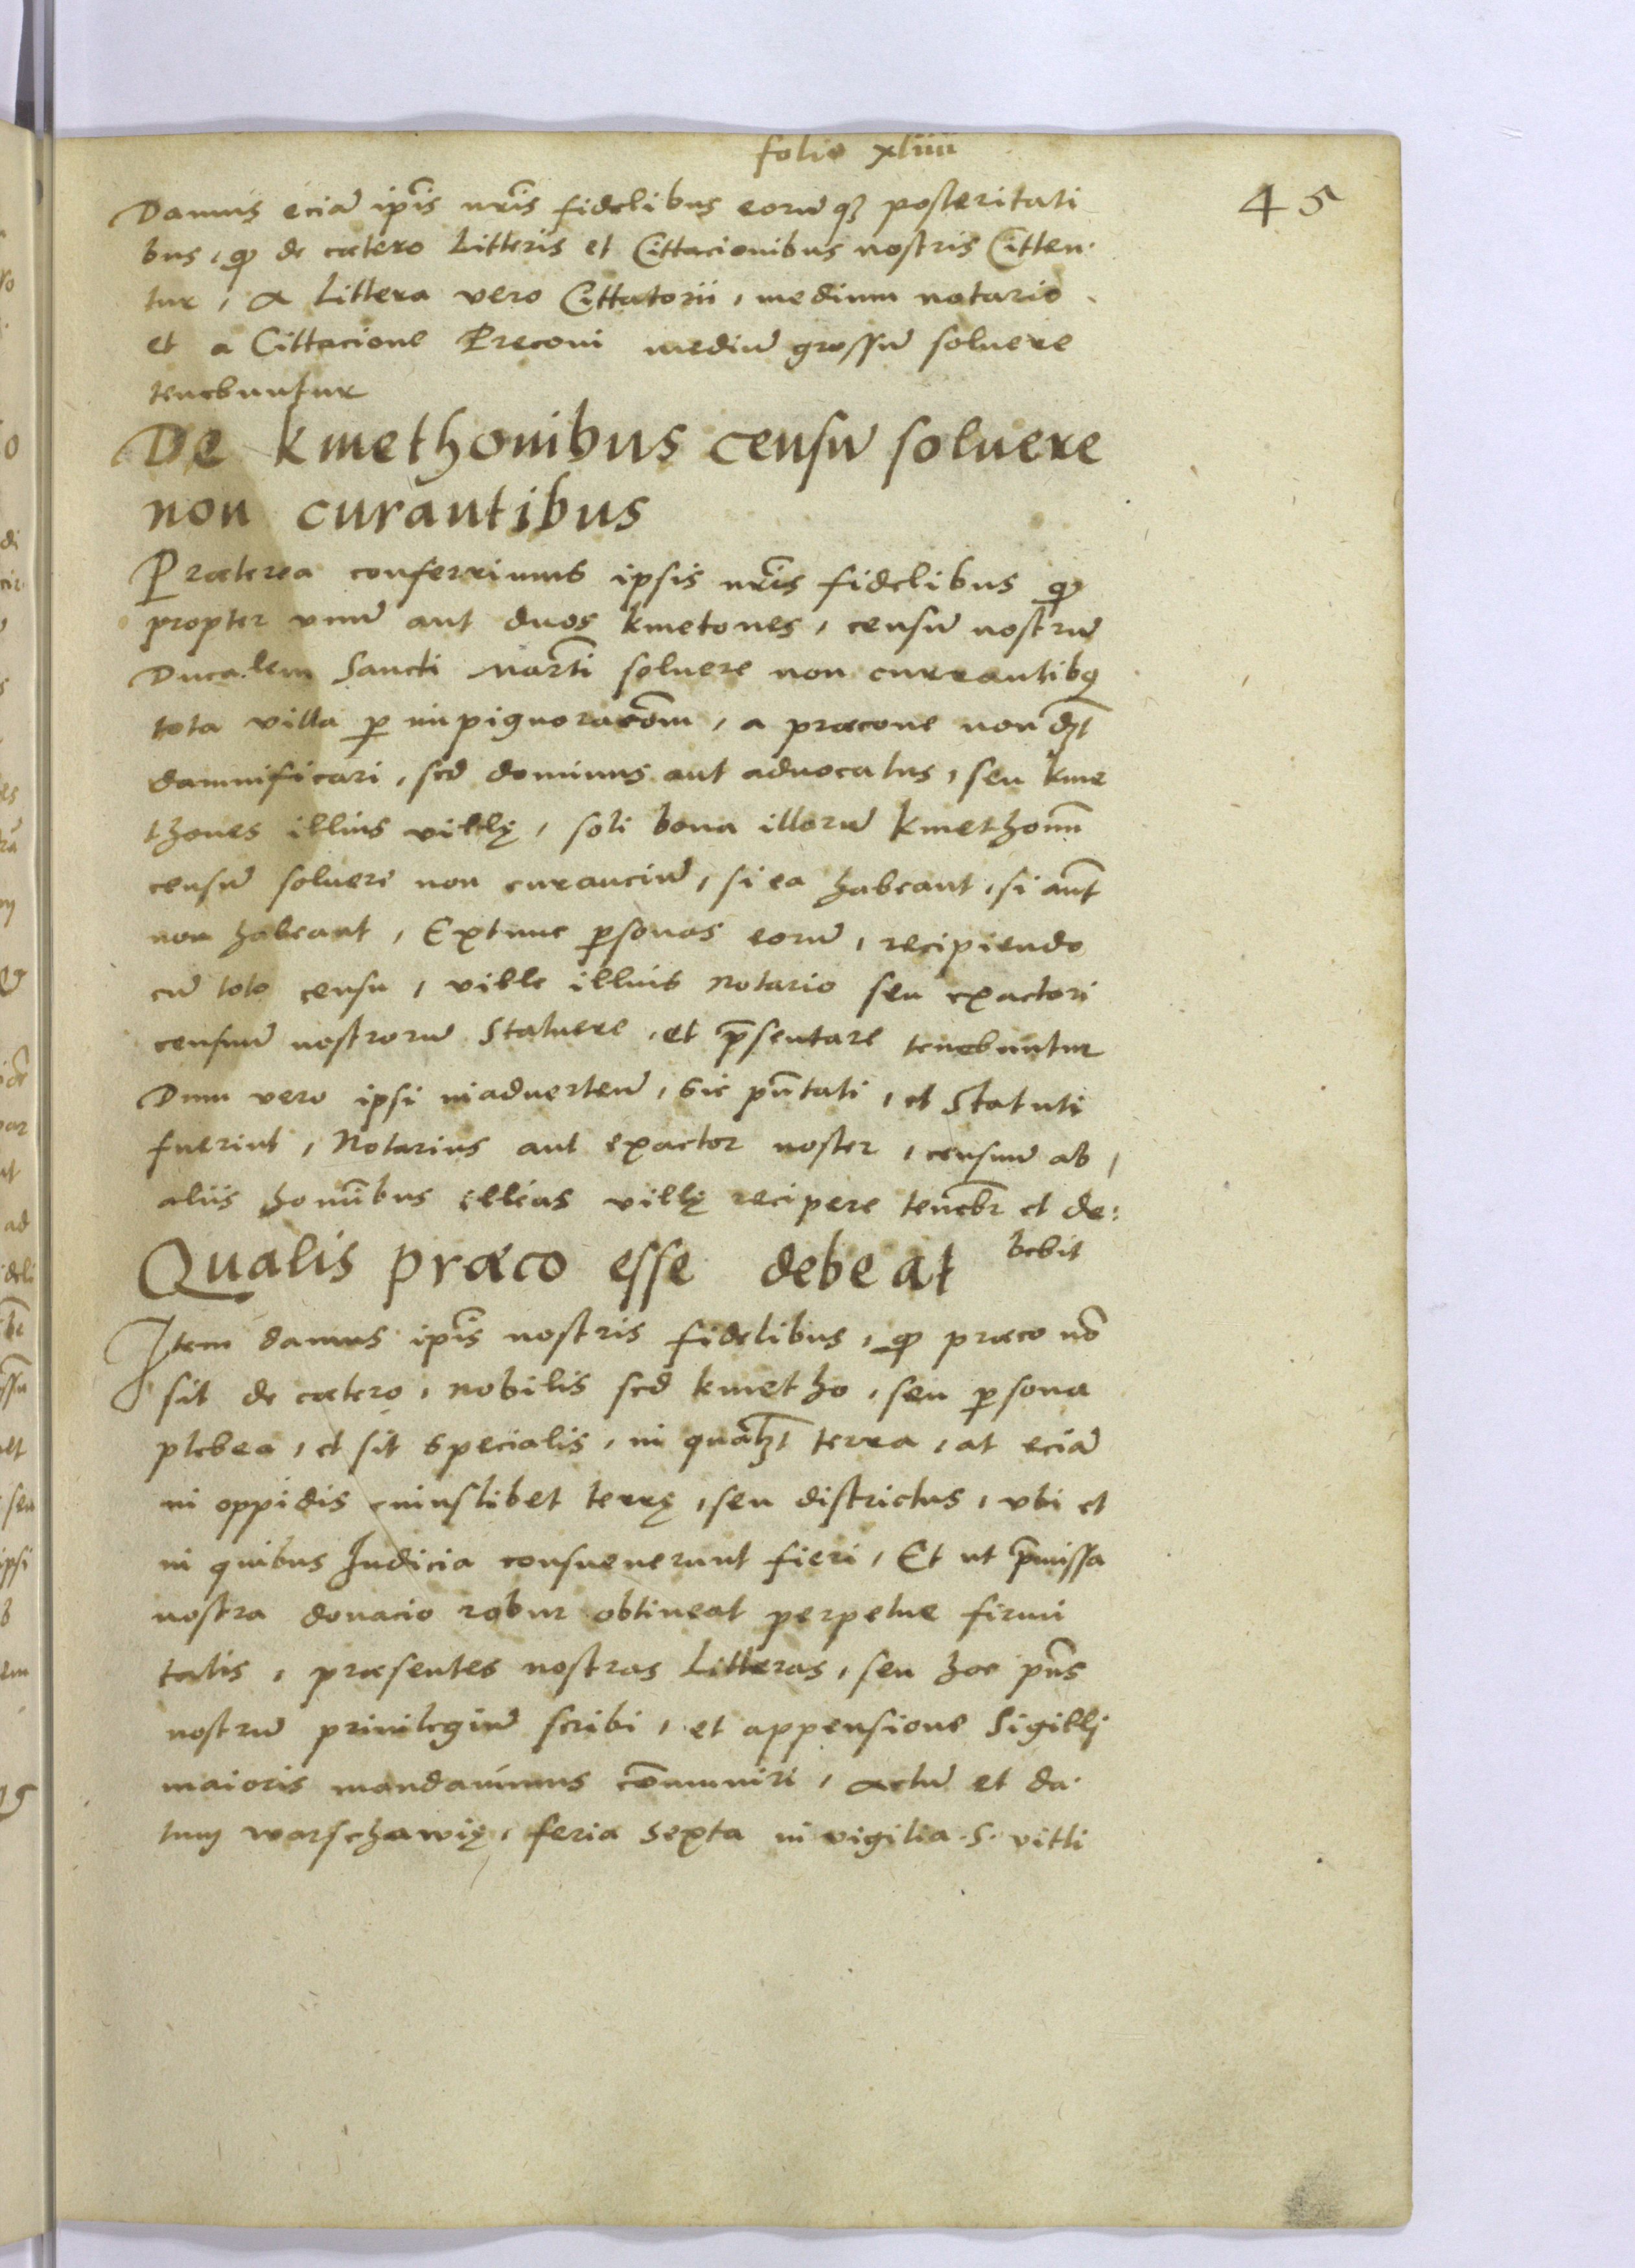 folio xliiii
45
Damus eciā ipīs nrīs fidelibus eorūqꝫ posteritati
bus, ꝙ de cætero Litteris et Cittacionibus nostris Citten-
tur, A Littera vero Cittatorii, medium notario
et a Cittacione Preconi mediū grossū soluere
tenebuntur
De kmethonibus censū soluere
non curantibus
Præterea conferrimus ipsis nrīs fidelibus ꝙ
propter vnū aut duos kmetones, censū nostrū
Ducalem Sancti Martī soluere non currantibꝫ
tota villa ꝑ impignoracōm, a præcone non dꝫt
damnificari, sed dominus aut aduocatus, seu kme
thones illius villę, soli bona illorū kmethonū
censū soluere non curanciū, si ea habeant, si aut̄
non habeant, Extunc ꝑsonas eorū, recipiendo
cū toto censu, ville illius Notario seu exactori
censuū nostrorū Statuere, et p̄sentare tenebuntur
Dum vero ipsi inaduertenc̄, sic pn̄tati, et Statuti
fuerint, Notarius aut exactor noster, censum ab,
aliis hominībus illius villę recipere tenebr̄ et de:
bebit
Qualis præco esse debeat
Item damus ipīs nostris fidelibus, ꝙ præco nō
sit de cætero, nobilis sed kmetho, seu ꝑsona
plebea, et sit specialis, in qualꝫt terra, at eciā
in oppidis cuiuslibet terrę, seu districtus, vbi et
in quibus Iudicia consueuerunt fieri, Et ut p̄missa
nostra donacio robur obtineat perpetue firmi
tatis, præsentes nostras Litteras, seu hoc pn̄s
nostrū priuilegiū scribi, et appensione Sigillj
maioris mandauimus cōmuniri, Actū et da-
tum Warschawię, feria Sexta in vigilia .S. vitti